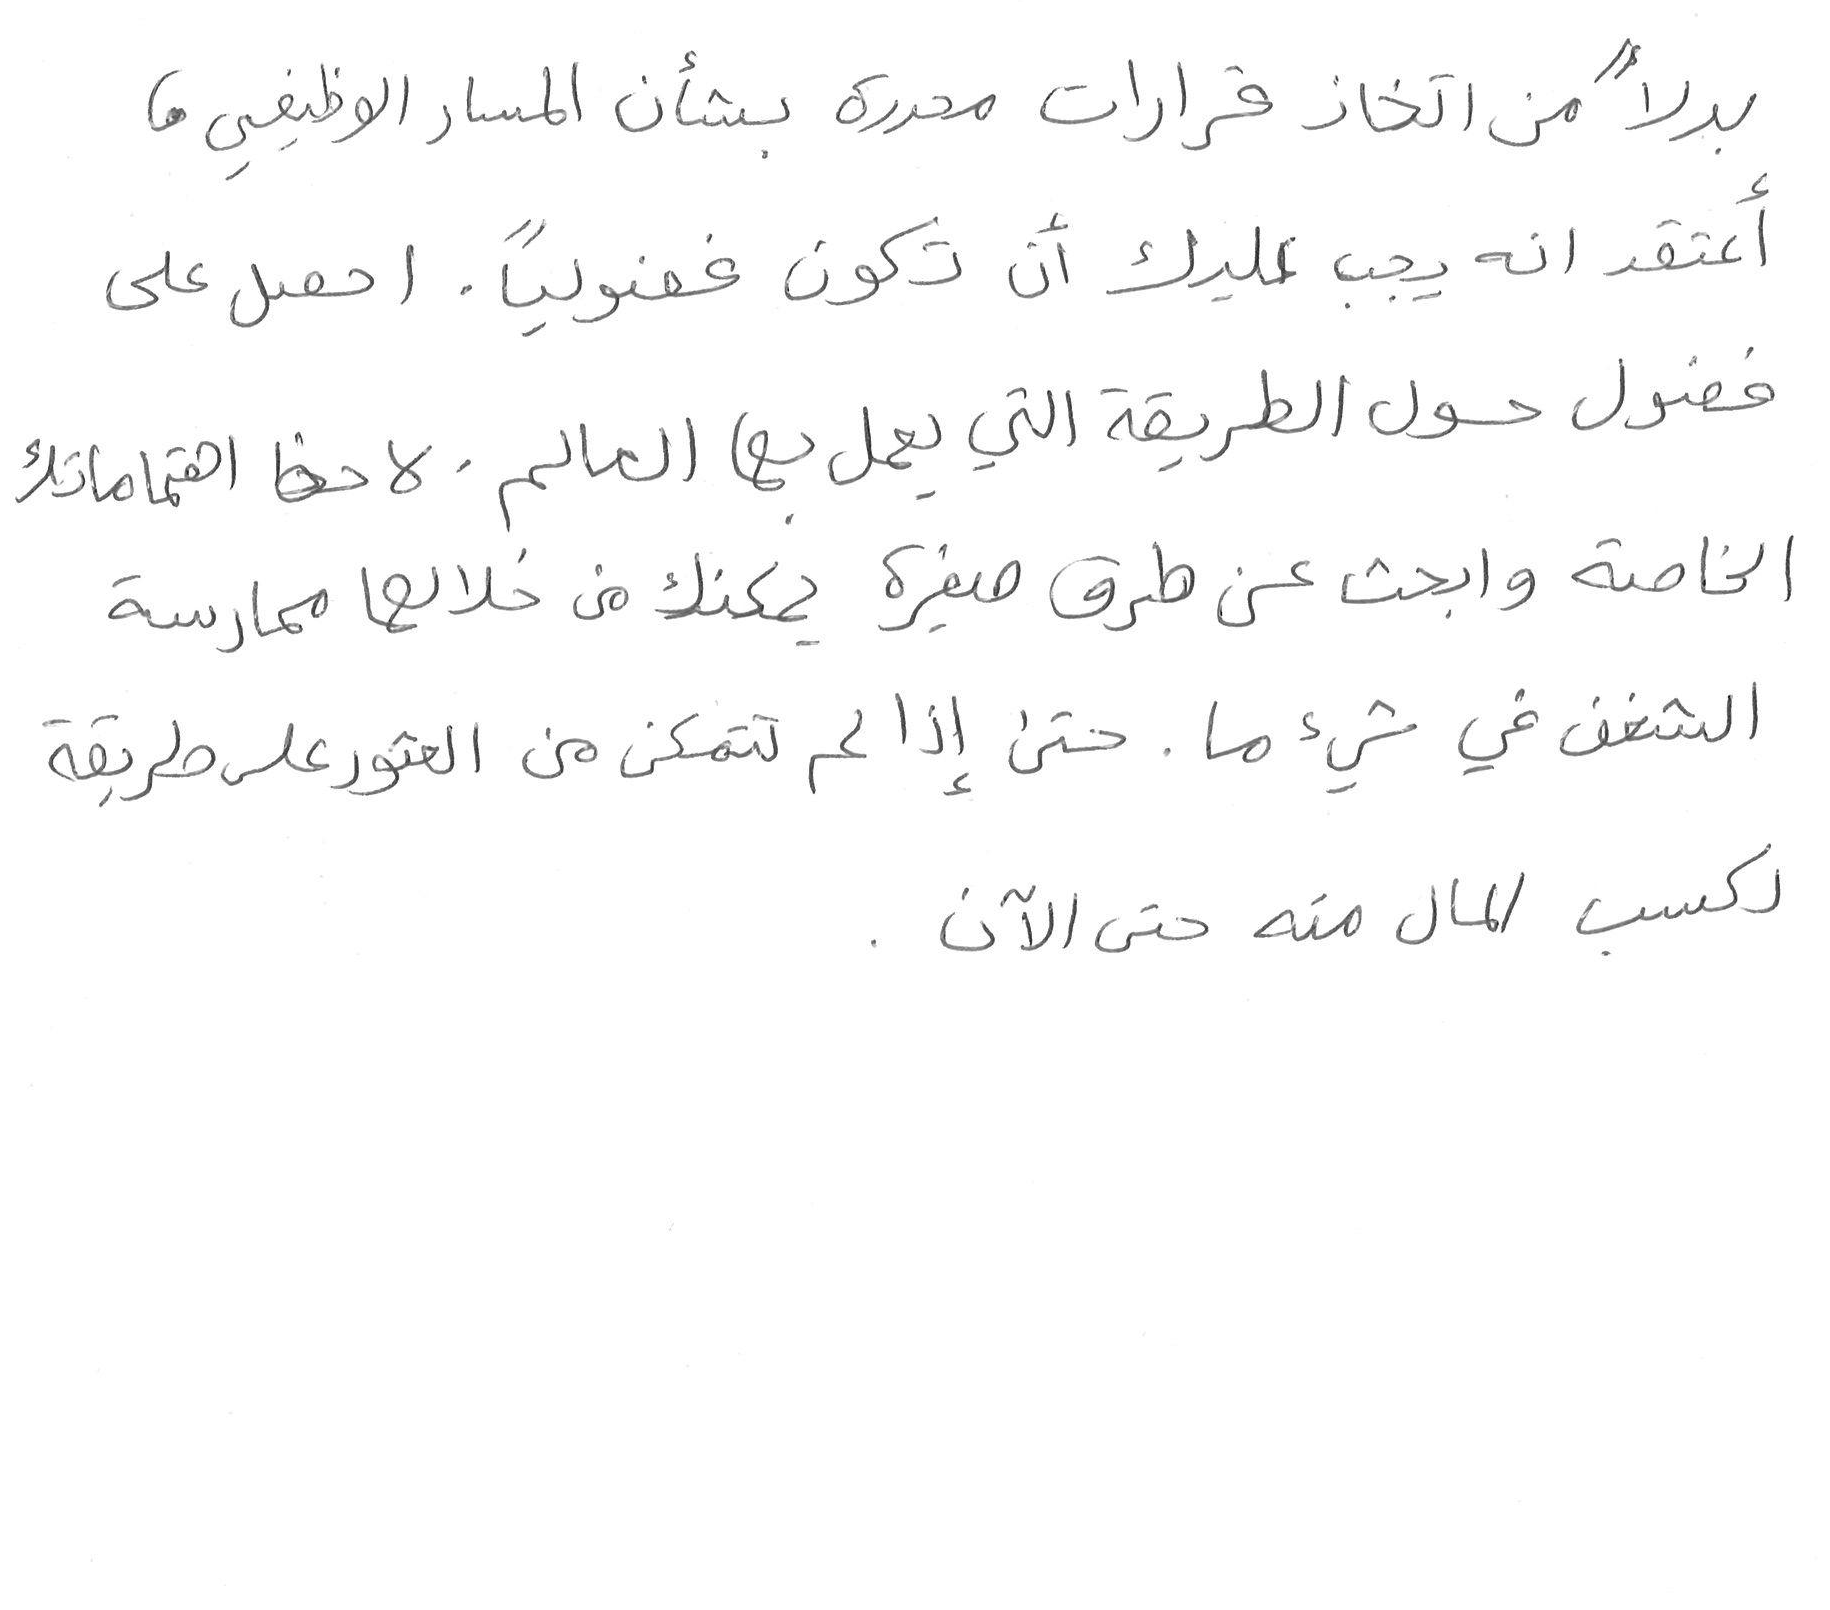 بدلاً من اتخاذ قرارات محددة بشأن المسار الوظيفي،
أعتقد انه يجب عليك أن تكون فضولياً. احصل على
فضول حول الطريقة التي يعمل بها العالم. لاحظ اهتماماتك
الخاصة وابحث عن طرق صغيرة يمكنك من خلالها ممارسة
الشغف في شيء ما. حتى إذا لم تتمكن من العثور على طريقة
لكسب المال منه حتى الآن.